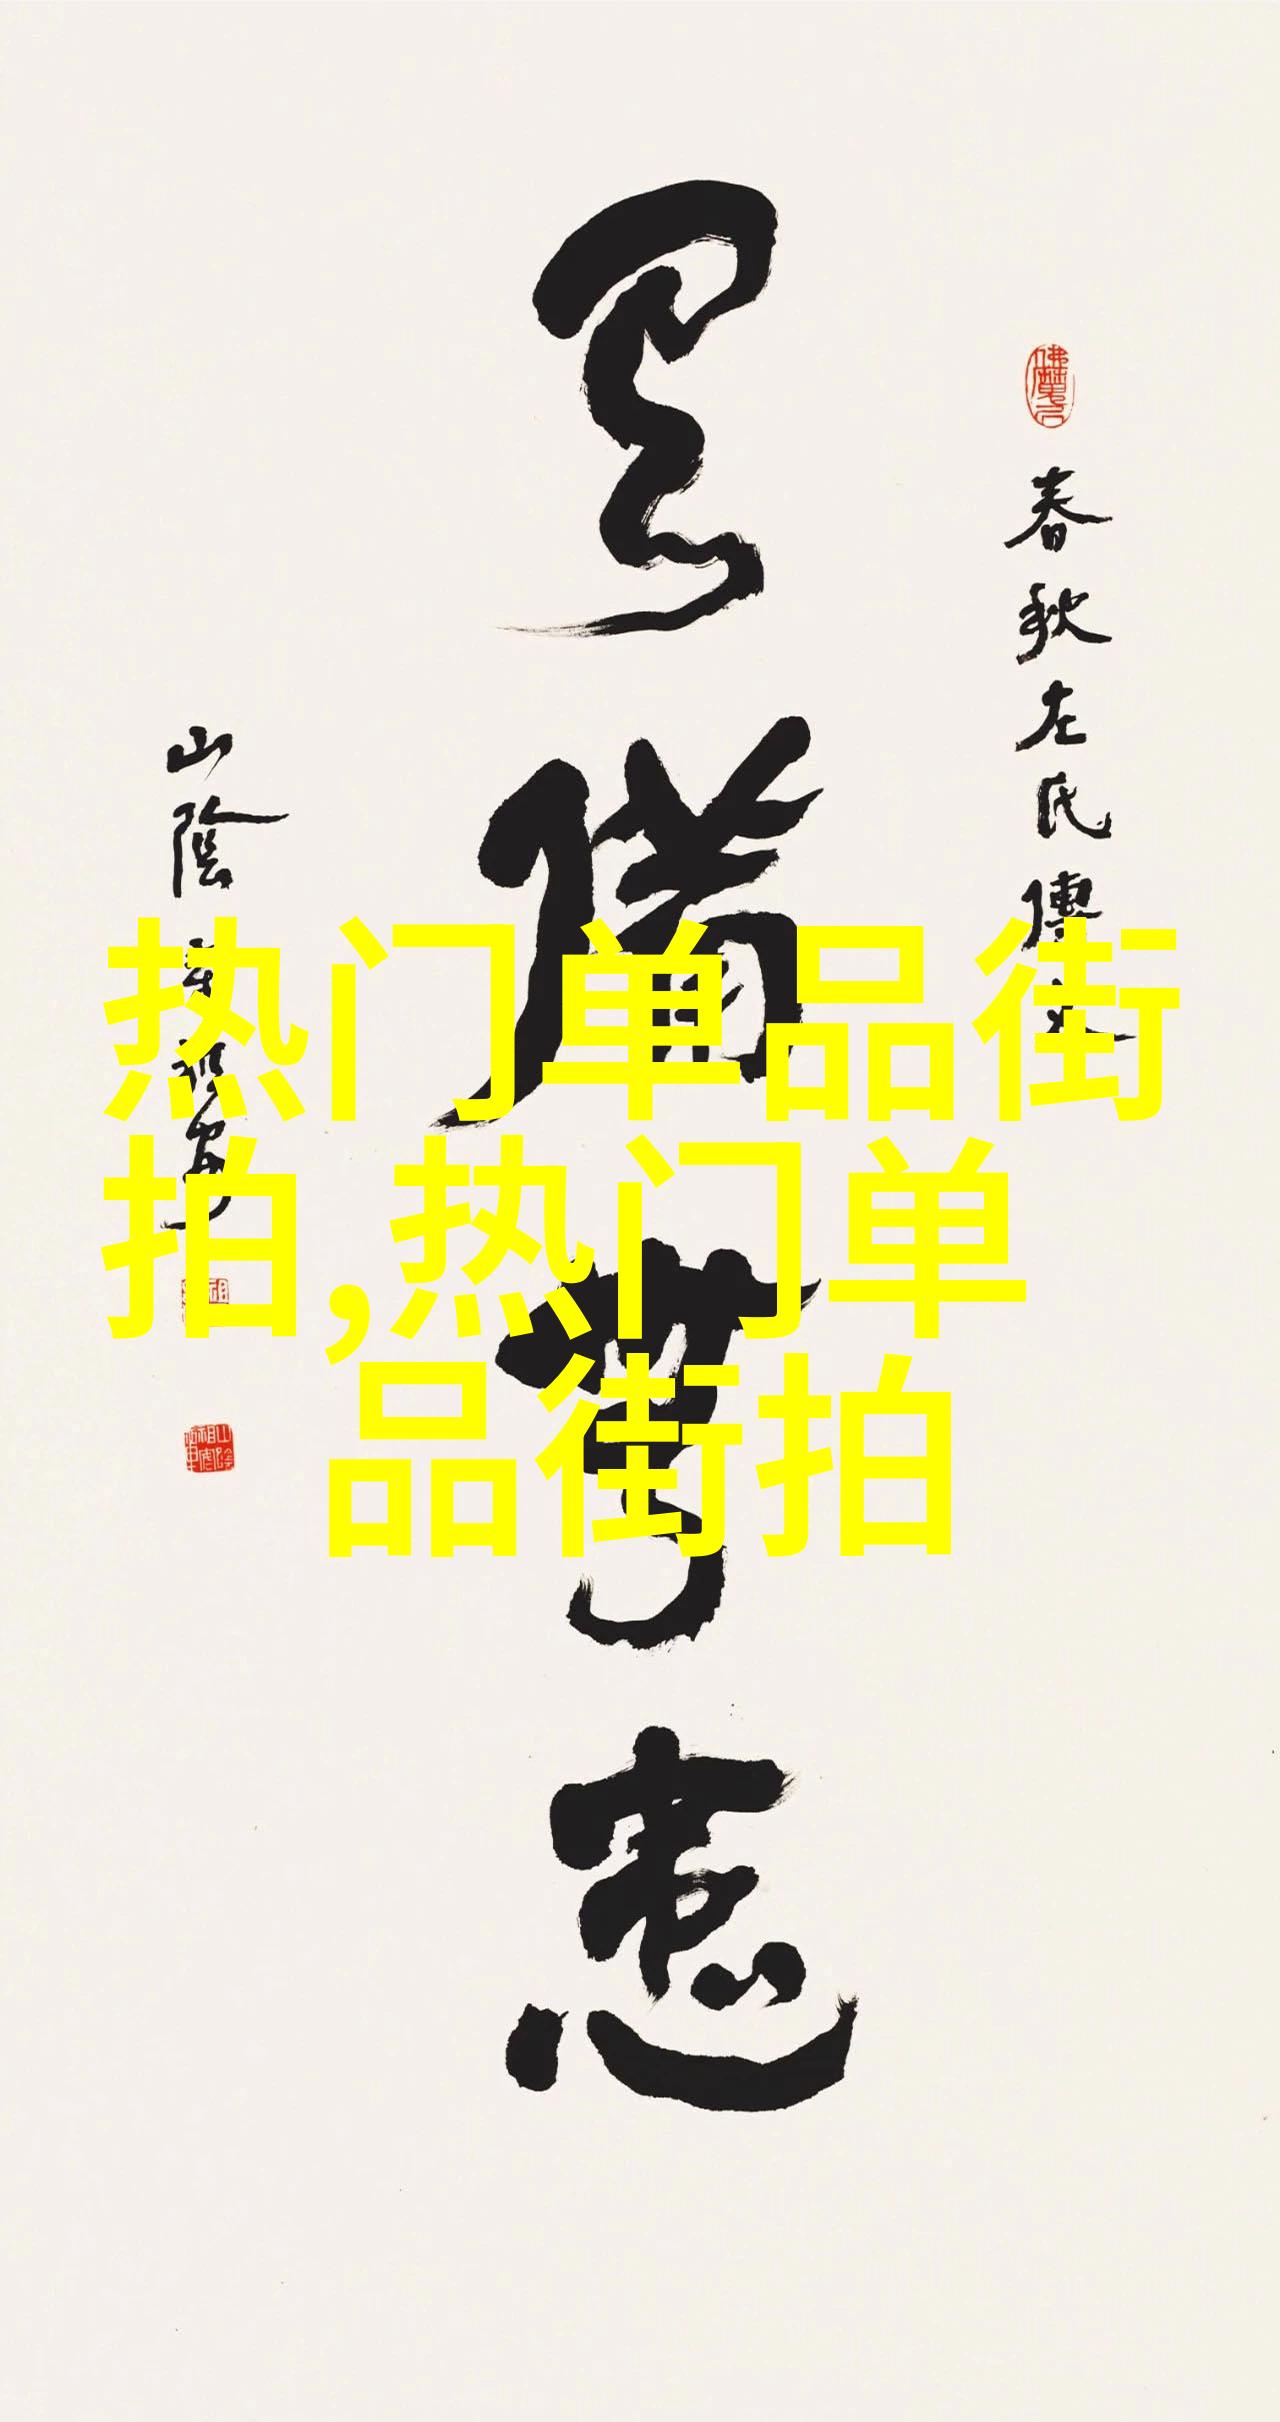 春秋左氏傳
有備無患
山陰
热门单品街
拍,热门单
品街拍